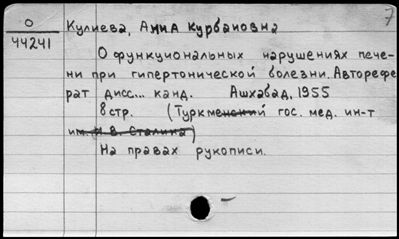 7
О
44241
Кулиева, Анна Курбановна
О функциональных нарушениях пече-
ни при гипертонической болезни. Авторефе
рат дисс... канд. Ашхабад, 1955
8стр. (Туркменский гос. мед. ин-т
им. И. В. Сталина)
На правах рукописи.